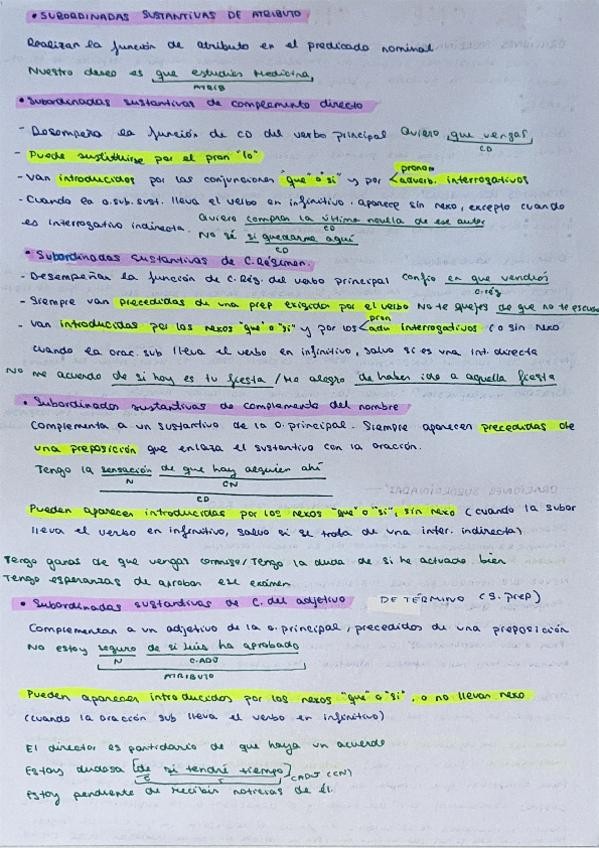 • SUBORDINADAS SUSTANTIVAS DE ATRIBUTO
Realizan la función de atributo en el predicado nominal
Nuestro deseo es que estudies Medicina,
ATRIB
• Subordinadas sustantivas de complemento directo
- Desempeña la función de CD del verbo principal Quiero que vengas
CD
- Puede sustituirse por el pron "lo"
pronom
- Van introducidos por las conjunciones "que" o "si" y por < adverb. interrogativos
- Cuando la o.sub.sust. lleva el verbo en infinitivo, aparece sin nexo, excepto cuando
es interrogativo indirecta. Quiero comprar la última novela de ese autor
CD
No sé si quedarme aquí
CD
• Subordinadas sustantivas de C.Régimen.
- Desempeñan la función de C.Rég. del verbo principal Confío en que vendrás
C.rég
- Siempre van precedidas de una prep exigida por el verbo No te quejes de que no te escuse
pron
- Van introducidas por los nexos "que" o "si" y por los < adv interrogativos (o sin nexo
cuando la orac. sub lleva el verbo en infinitivo, salvo si es una int. directa
No me acuerdo de si hoy es tu fiesta / Me alegro de haber ido a aquella fiesta
• Subordinadas sustantivas de complemento del nombre
Complementa a un sustantivo de la O. principal. Siempre aparecen precedidas de
una preposición que enlaza el sustantivo con la oración.
Tengo la sensación de que hay alguien ahí
N CN
CD
Pueden aparecer introducidas por los nexos "que" o "si", sin nexo (cuando la subor
lleva el verbo en infinitivo, salvo si se trata de una inter. indirecta)
Tengo ganas de que vengas conmigo / Tengo la duda de si he actuado bien
Tengo esperanzas de aprobar ese examen
• Subordinadas sustantivas de C. del adjetivo DE TÉRMINO (S. prep)
Complementan a un adjetivo de la o. principal, precedidos de una preposición
No estoy seguro de si Luis ha aprobado
N C.ADJ
ATRIBUTO
Pueden aparecer introducidos por los nexos "que" o "si", o no llevan nexo
(cuando la oración sub lleva el verbo en infinitivo)
El director es partidario de que haya un acuerdo
Estoy dudosa [de si tendré tiempo] CADJ (CN)
E T
Estoy pendiente de recibir noticias de él.